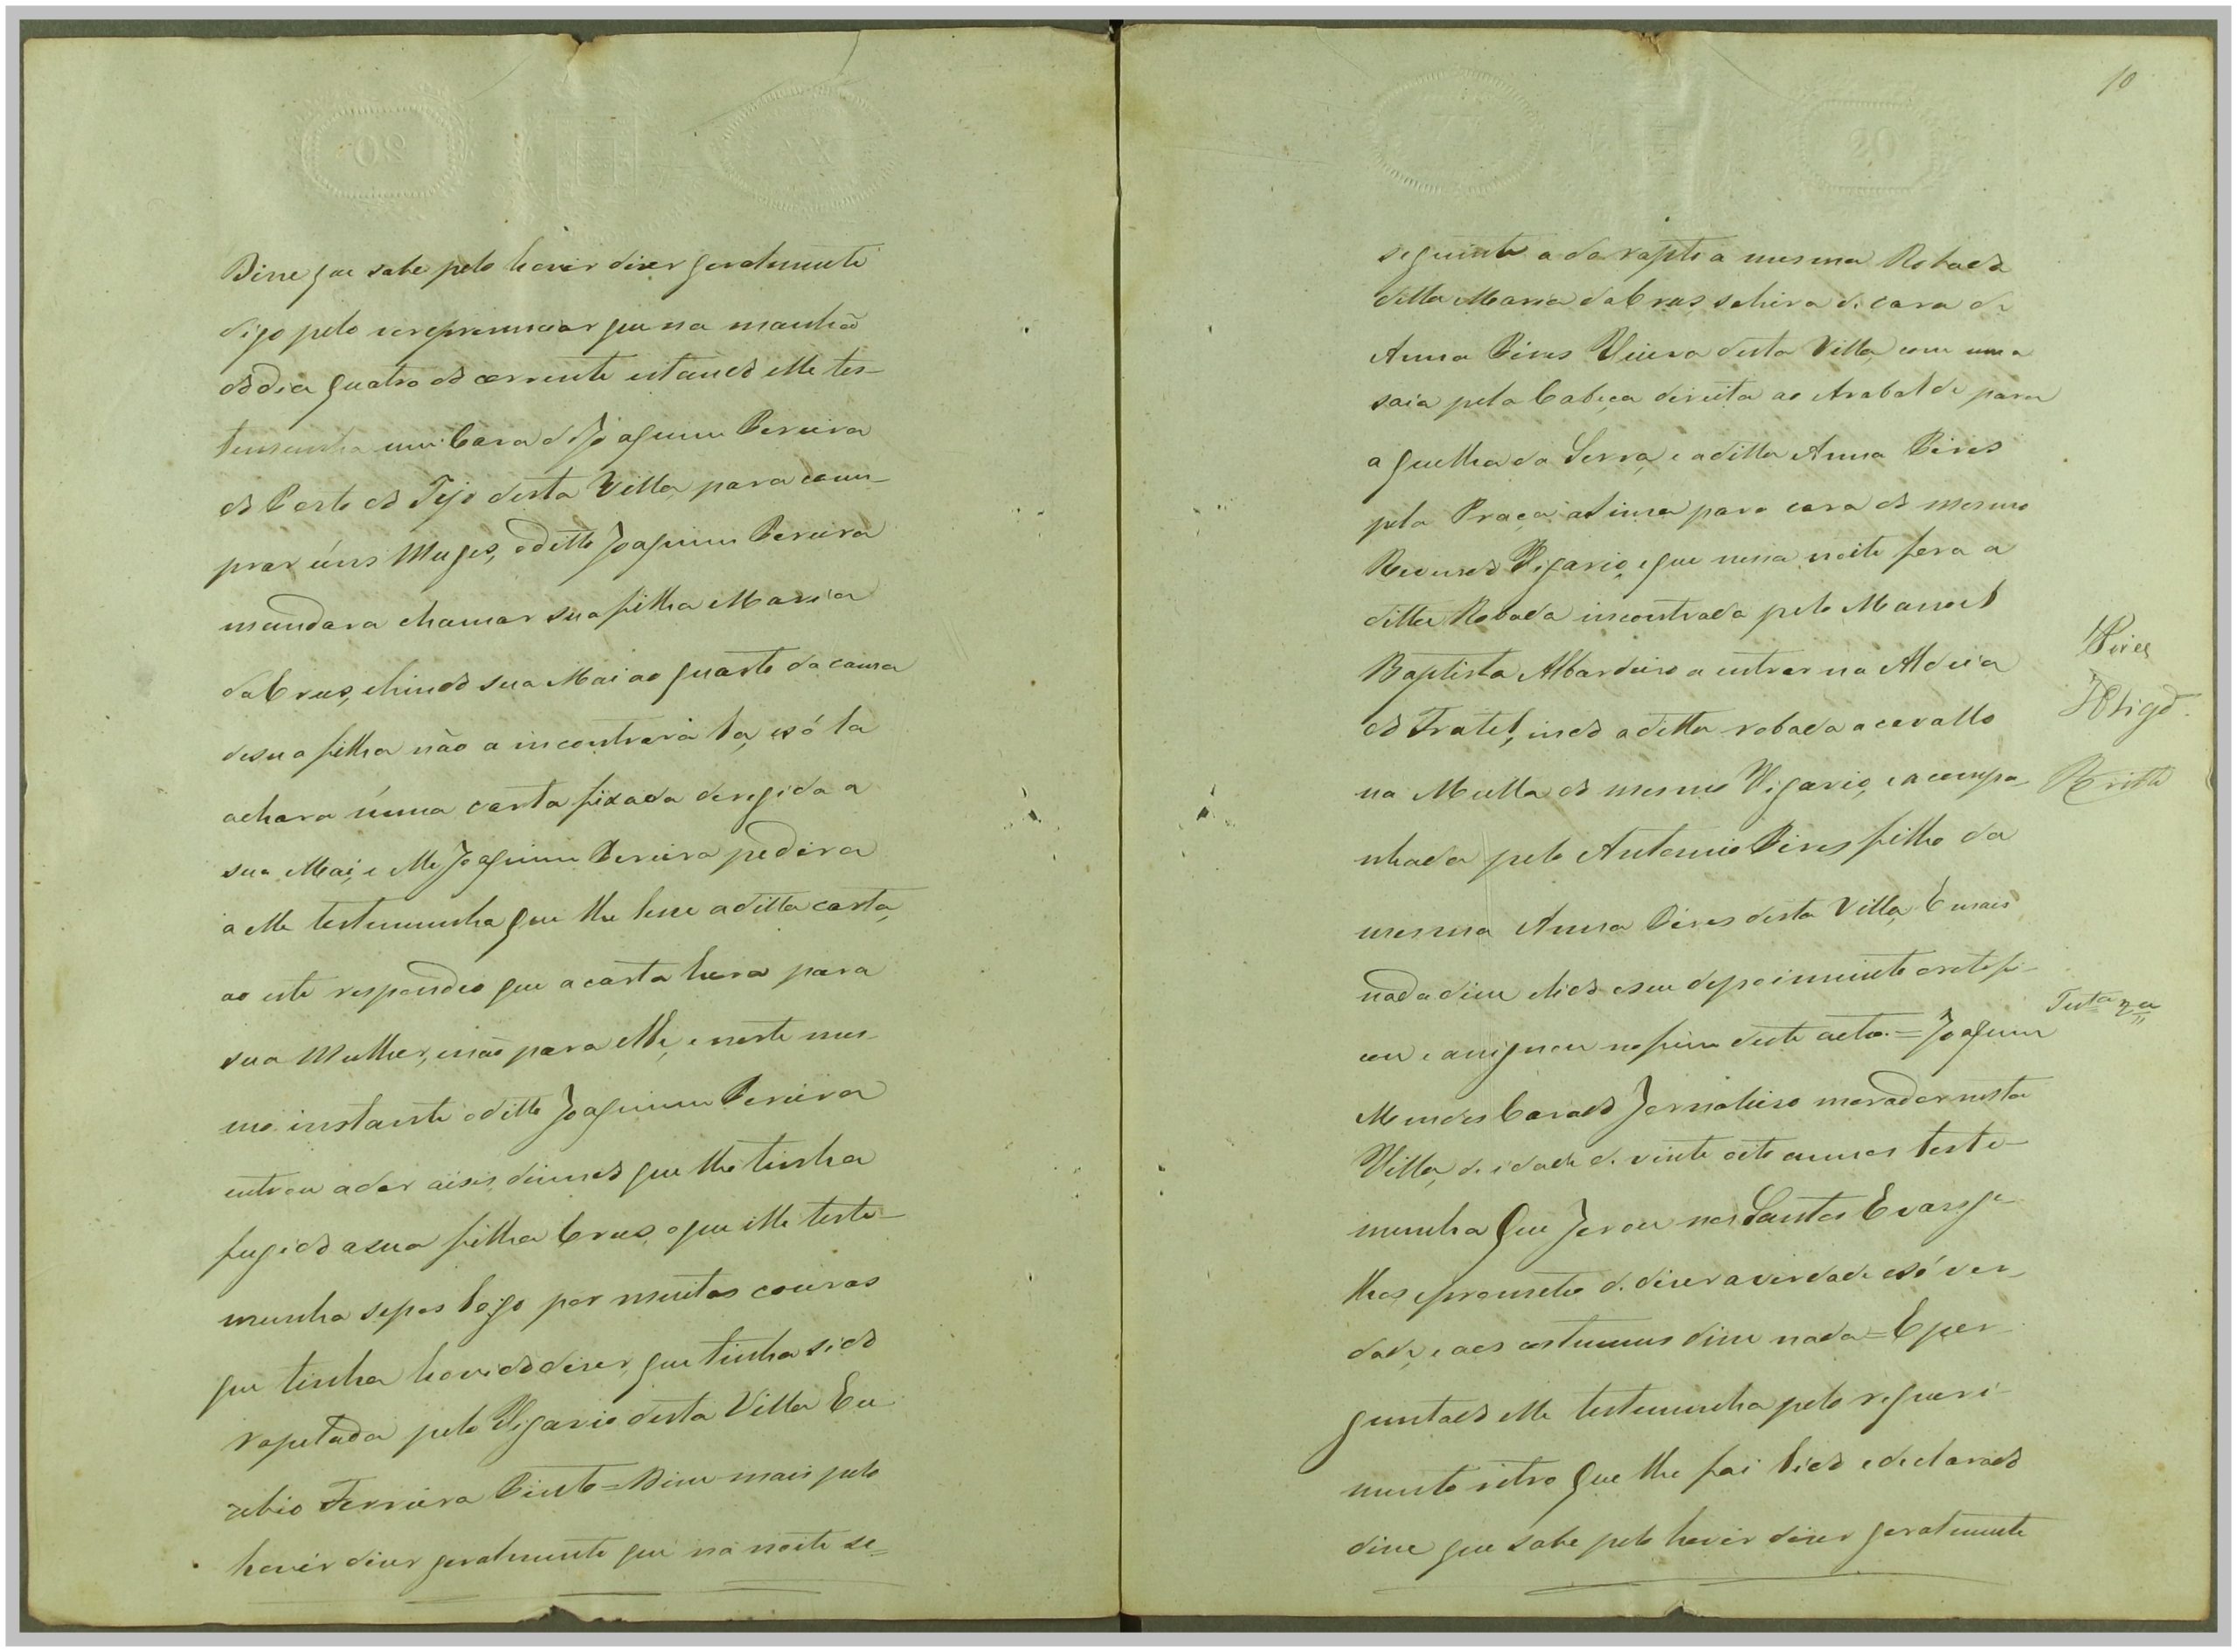 Disse que sabe pelo hovir diser geralmente
digo pelo ver e presenciar que na manhãa
do dia quatro do corrente estando elle tes-
temunha em Casa de Joaquim Pereira
do Porto do Tejo desta Villa para com-
prar úns Muges, o ditto Joaquim Pereira
mandara chamar sua filha Maria
da Crus, e hindo sua Mai ao quarto da cama
de sua filha não a incontrará la, e só la
achara úuma carta fixada deregida a
sua Mai, e elle Joaquim Pereira pedira
a elle testemunha que lhe lesse a ditta carta,
ao este respondeo que a carta hera para
sua Mulher, e não para elle, e neste mes-
mo instante o ditto Joaquim Pereira
entrou a dar aisis, disendo que lhe tinha
fugido a sua filha Crus, o que elle teste-
munha supos logo por muitas cousas
que tinha hovido diser, que tinha sido
rapetada pelo Vigario desta Villa Eu-
zebio Ferreira Pinto = Disse mais pelo
hovir diser geralmente que na noite se=
10
seguinte a do rapto a mesma Robada
ditta Maria da Crus, sahira de casa de
Anna Pires Viuva desta Villa com uma
saia pela Cabeça direita ao Arabalde para
a quelha da Serra, e a ditta Anna Pires
pela Praça asima para casa do mesmo
Reverendo Vigario, e que nessa noite fora a
ditta Robada incontrada pelo Manoel
Baptista Albardeiro a entrar na Aldeia
do Fratel, indo a ditta robada a cavallo
na Mulla do mesmo Vigario, e acompa-
nhada pelo Antonio Pires filho da
mesma Anna Pires desta Villa, E mais
nada disse e lido o seu depoimento o retefi-
cou e assignou no fim deste auto. = Joaquim
Mendes Carado Jornaleiro morador nesta
Villa, de idade de vinte oito annos teste-
munha que Jorou nos Santos Evange-
lhos, e prometeo de diser a verdade e só ver-
dade, e aos costumes disse nada = E per-
guntado elle testemunha pelo requeri-
mento retro que lhe foi lido e declarado
disse que sabe pelo hovir diser geralmente
Pires
Testa